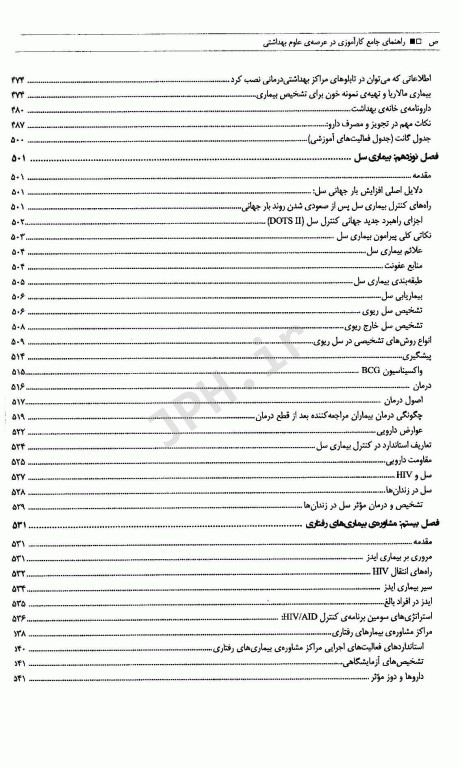 ص □■ راهنمای جامع کارآموزی در عرصه‌ی علوم بهداشتی
اطلاعاتی که می‌توان در تابلوهای مراکز بهداشتی‌درمانی نصب کرد ۴۷۴
بیماری مالاریا و تهیه‌ی نمونه خون برای تشخیص بیماری ۴۷۴
دارونامه‌ی خانه‌ی بهداشت ۴۸۰
نکات مهم در تجویز و مصرف دارو: ۴۸۷
جدول گانت (جدول فعالیت‌های آموزشی) ۵۰۰
فصل نوزدهم: بیماری سل ۵۰۱
مقدمه ۵۰۱
دلایل اصلی افزایش بار جهانی سل: ۵۰۱
راه‌های کنترل بیماری سل پس از صعودی شدن روند بار جهانی ۵۰۱
اجزای راهبرد جدید جهانی کنترل سل (DOTS II) ۵۰۲
نکاتی کلی پیرامون بیماری سل ۵۰۳
علائم بیماری سل ۵۰۴
منابع عفونت ۵۰۴
طبقه‌بندی بیماری سل ۵۰۵
بیماریابی سل ۵۰۶
تشخیص سل ریوی ۵۰۶
تشخیص سل خارج ریوی ۵۰۸
انواع روش‌های تشخیصی در سل ریوی ۵۰۹
پیشگیری ۵۱۴
واکسیناسیون BCG ۵۱۵
درمان ۵۱۶
اصول درمان ۵۱۷
چگونگی درمان بیماران مراجعه‌کننده بعد از قطع درمان ۵۱۹
عوارض دارویی ۵۲۲
تعاریف استاندارد در کنترل بیماری سل ۵۲۴
مقاومت دارویی ۵۲۵
سل و HIV ۵۲۷
سل در زندان‌ها ۵۲۸
تشخیص و درمان مؤثر سل در زندان‌ها ۵۲۹
فصل بیستم: مشاوره‌ی بیماری‌های رفتاری ۵۳۱
مقدمه ۵۳۱
مروری بر بیماری ایدز ۵۳۱
راه‌های انتقال HIV ۵۳۲
سیر بیماری ایدز ۵۳۴
ایدز در افراد بالغ ۵۳۵
استراتژی‌های سومین برنامه‌ی کنترل HIV/AID: ۵۳۶
مراکز مشاوره‌ی بیمارهای رفتاری ۱۳۸
استانداردهای فعالیت‌های اجرایی مراکز مشاوره‌ی بیماری‌های رفتاری ۱۴۰
تشخیص‌های آزمایشگاهی ۱۴۱
داروها و دوز مؤثر ۵۴۱
JPH.ir